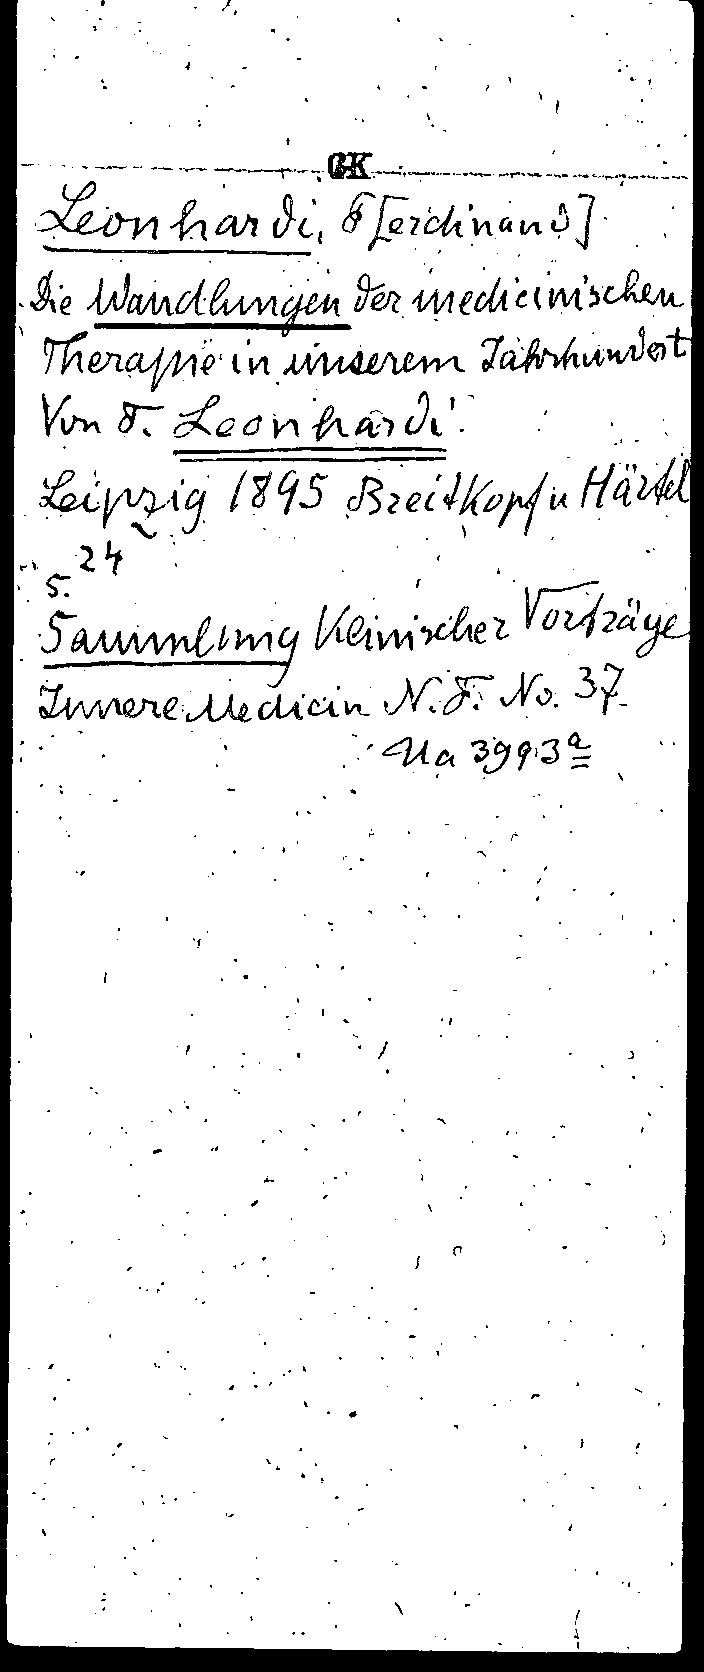 GK
Leonhardi, F[erdinand]
Die Wandlungen der medicinischen
Therapie in unserem Jahrhundert
Von F. Leonhardi
Leipzig 1895 Breitkopf u Härtel
24
S.
Sammlung Klinischer Vorträge
Innere Medicin N. F. No. 37
Ua 3993a